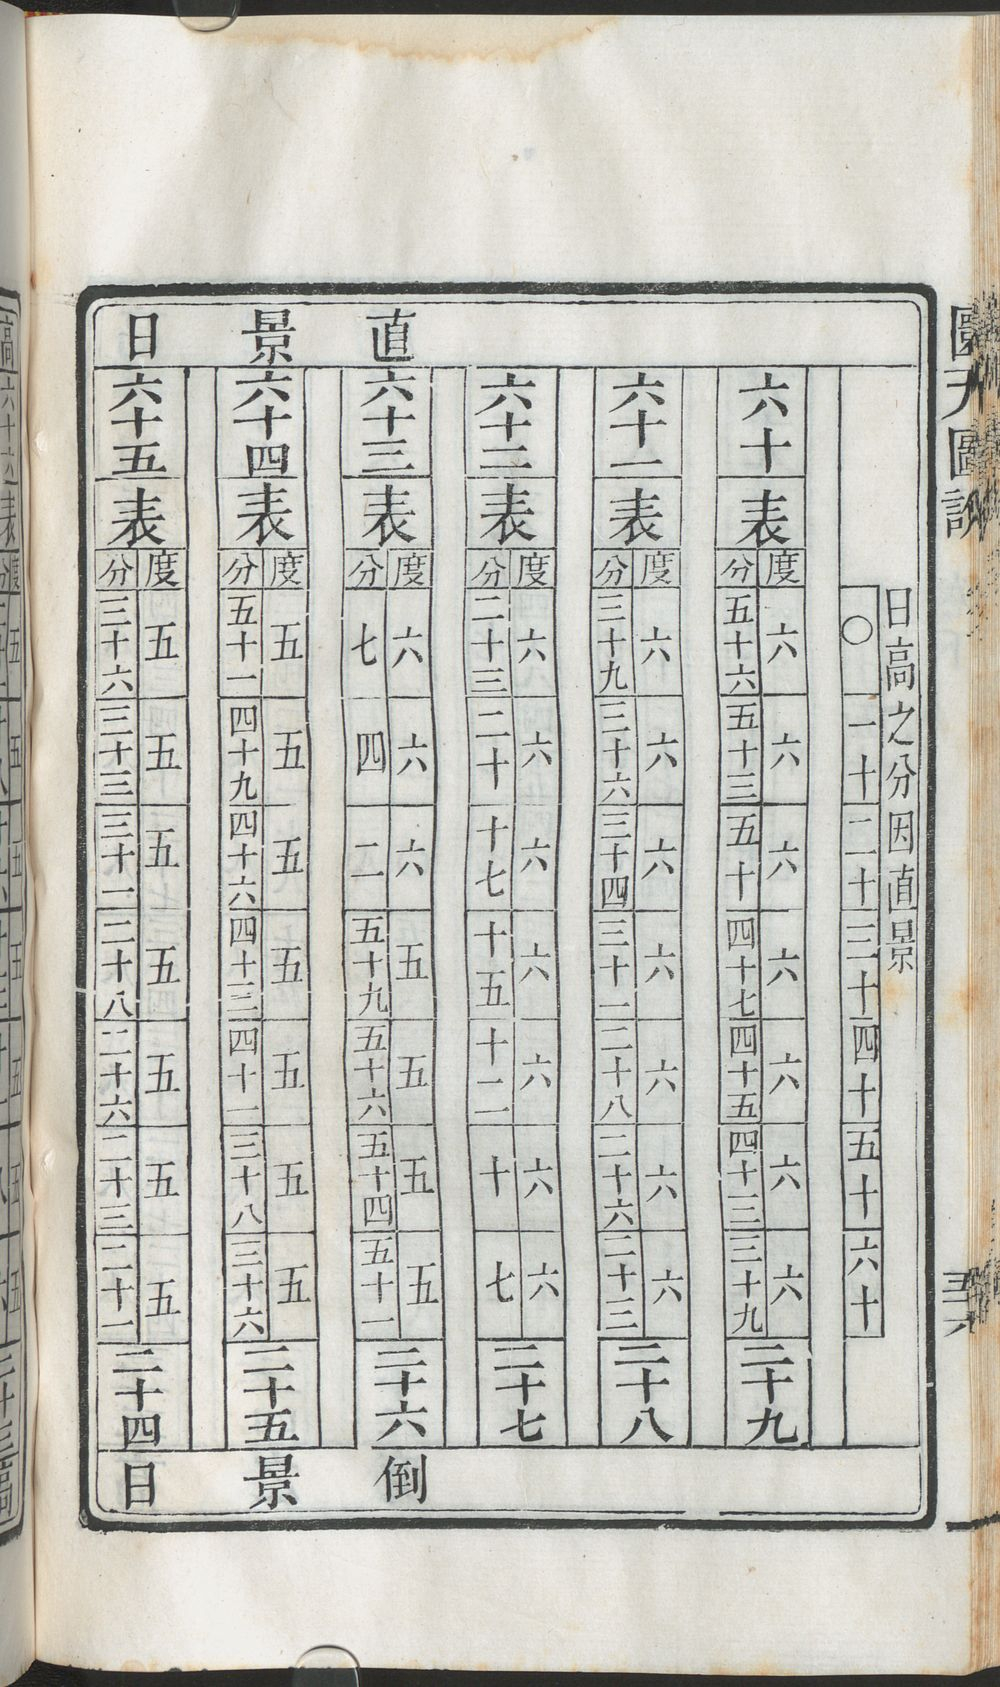 圜天圖說
日高之分因直景
〇 一十 二十 三十 四十 五十 六十
直景日
六十 表
度 六 六 六 六 六 六 六
分 五十六 五十三 五十 四十七 四十五 四十三 三十九
二十九
六十一 表
度 六 六 六 六 六 六 六
分 三十九 三十六 三十四 三十一 二十八 二十六 二十三
二十八
六十二 表
度 六 六 六 六 六 六 六
分 二十三 二十 十七 十五 十二 十 七
二十七
六十三 表
度 六 六 六 五 五 五 五
分 七 四 二 五十九 五十六 五十四 五十一
二十六
六十四 表
度 五 五 五 五 五 五 五
分 五十一 四十九 四十六 四十三 四十一 三十八 三十六
二十五
六十五 表
度 五 五 五 五 五 五 五
分 三十六 三十三 三十一 二十八 二十六 二十三 二十一
二十四
倒景日